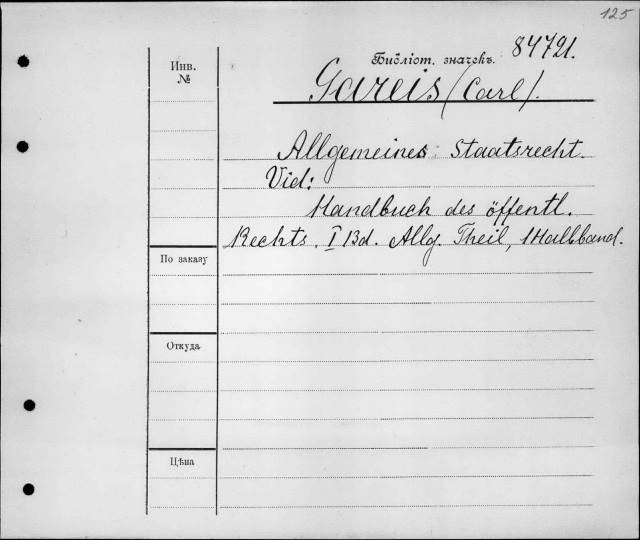 125
Библіот. значекъ. 84721.
Инв.
№
Gareis (Carl).
Allgemeines Staatsrecht.
Vid:
Handbuch des öffentl.
Rechts. I Bd. Allg. Theil, 1 Halbband.
По заказу
Откуда
Цѣна